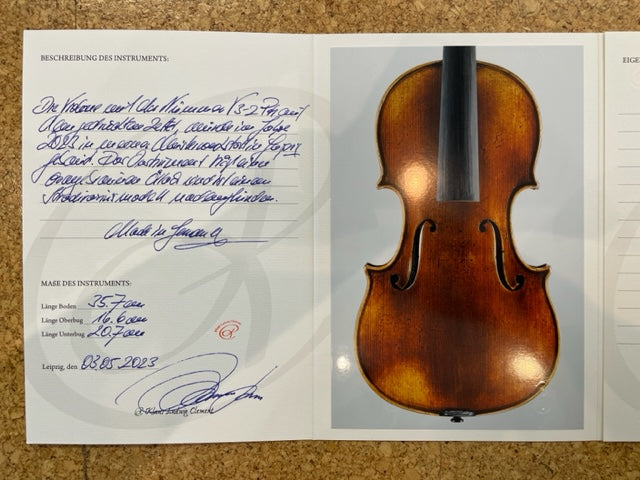 BESCHREIBUNG DES INSTRUMENTS:
Die Violine mit der Nummer
dem Zettel, wurde im Jahre
2023 in meiner Meisterwerkstatt in Leipzig
Das Instrument trägt einen
und ist einem
Stradivari modell nachempfunden.
Made in Germany
MAßE DES INSTRUMENTS:
Länge Boden 35.7 cm
Länge Oberbug 16.6 cm
Länge Unterbug 20.7 cm
Leipzig, den 03.05.2023
Klaus Ludwig Clement
EIGE